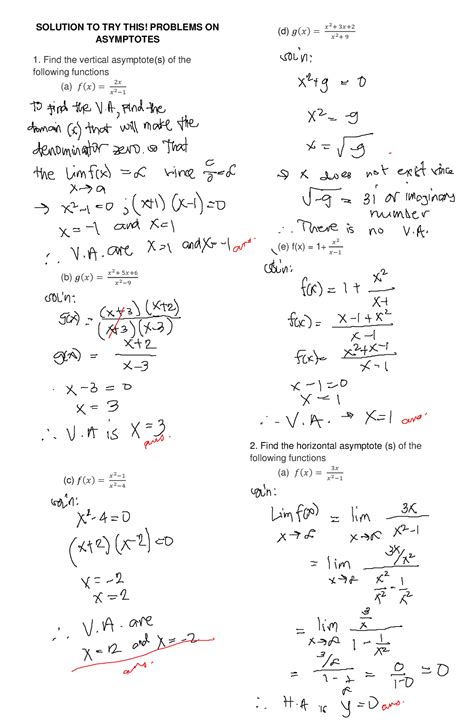 SOLUTION TO TRY THIS! PROBLEMS ON
ASYMPTOTES
1. Find the vertical asymptote(s) of the
following functions
(a) f(x) = 2x/(x²−1)
To find the V.A, find the
domain (s) that will make the
denominator zero. so that
the lim f(x) = ∞ since c/0 = ∞
x→a
→ x²−1=0 ; (x+1) (x−1)=0
x = −1 and x=1
∴ V.A. are x=1 and x=−1 ans.
(b) g(x) = (x²+5x+6)/(x²−9)
sol'n:
g(x) = (x+3)(x+2)/(x+3)(x−3)
g(x) = (x+2)/(x−3)
x−3 = 0
x = 3
∴ V.A is x=3
ans.
(c) f(x) = (x²−1)/(x²−4)
sol'n:
x²−4=0
(x+2)(x−2)=0
x = −2
x = 2
∴ V.A. are
x = 2 and x=−2
ans.
(d) g(x) = (x²+3x+2)/(x²+9)
sol'n:
x²+9 = 0
x² = −9
x = √−9
→ x does not exist since
√−9 = 3i or imaginary
number
∴ There is no V.A.
(e) f(x) = 1+ x²/(x−1)
sol'n:
f(x) = 1 + x²/(x−1)
f(x) = (x−1+x²)/(x−1)
f(x) = (x²+x−1)/(x−1)
x−1=0
x=1
∴ V.A. → x=1 ans.
2. Find the horizontal asymptote (s) of the
following functions
(a) f(x) = 3x/(x²−1)
sol'n:
Lim f(x) = lim 3x/(x²−1)
x→∞ x→∞
= lim (3x/x²)/(x²/x² − 1/x²)
x→∞
= lim (3/x)/(1 − 1/x²)
x→∞
= (3/∞)/(1 − 1/∞) = 0/(1−0) = 0
∴ H.A is y=0 ans.